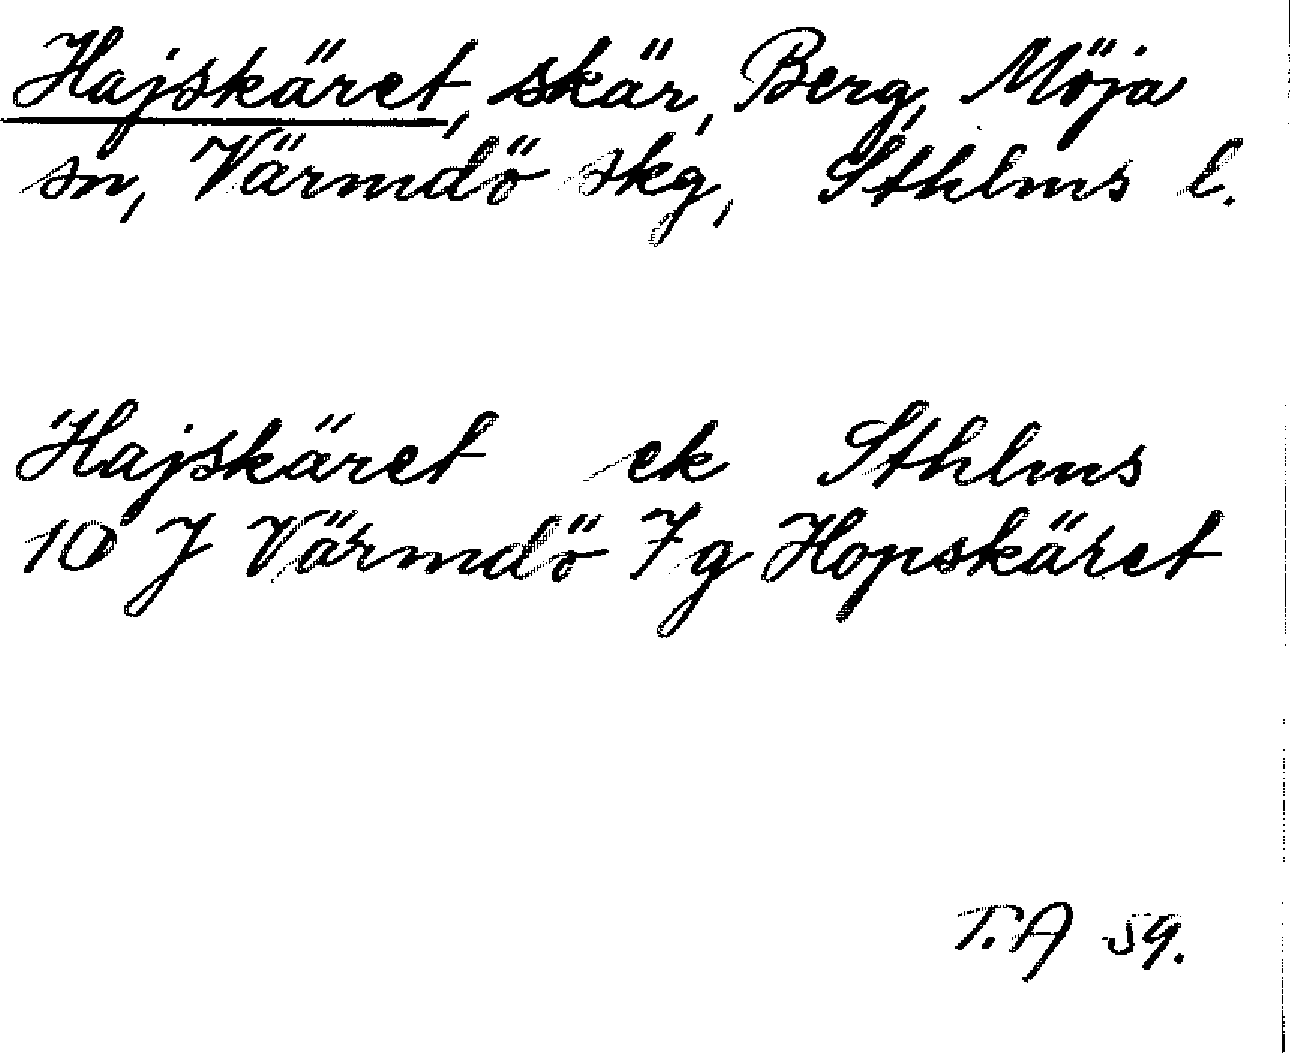 Hajskäret, skär, Berg, Möja
sn, Värmdö skg, Sthlms l.
Hajskäret ek Sthlms
10 J Värmdö 7 g Hopskäret
T.A 59.